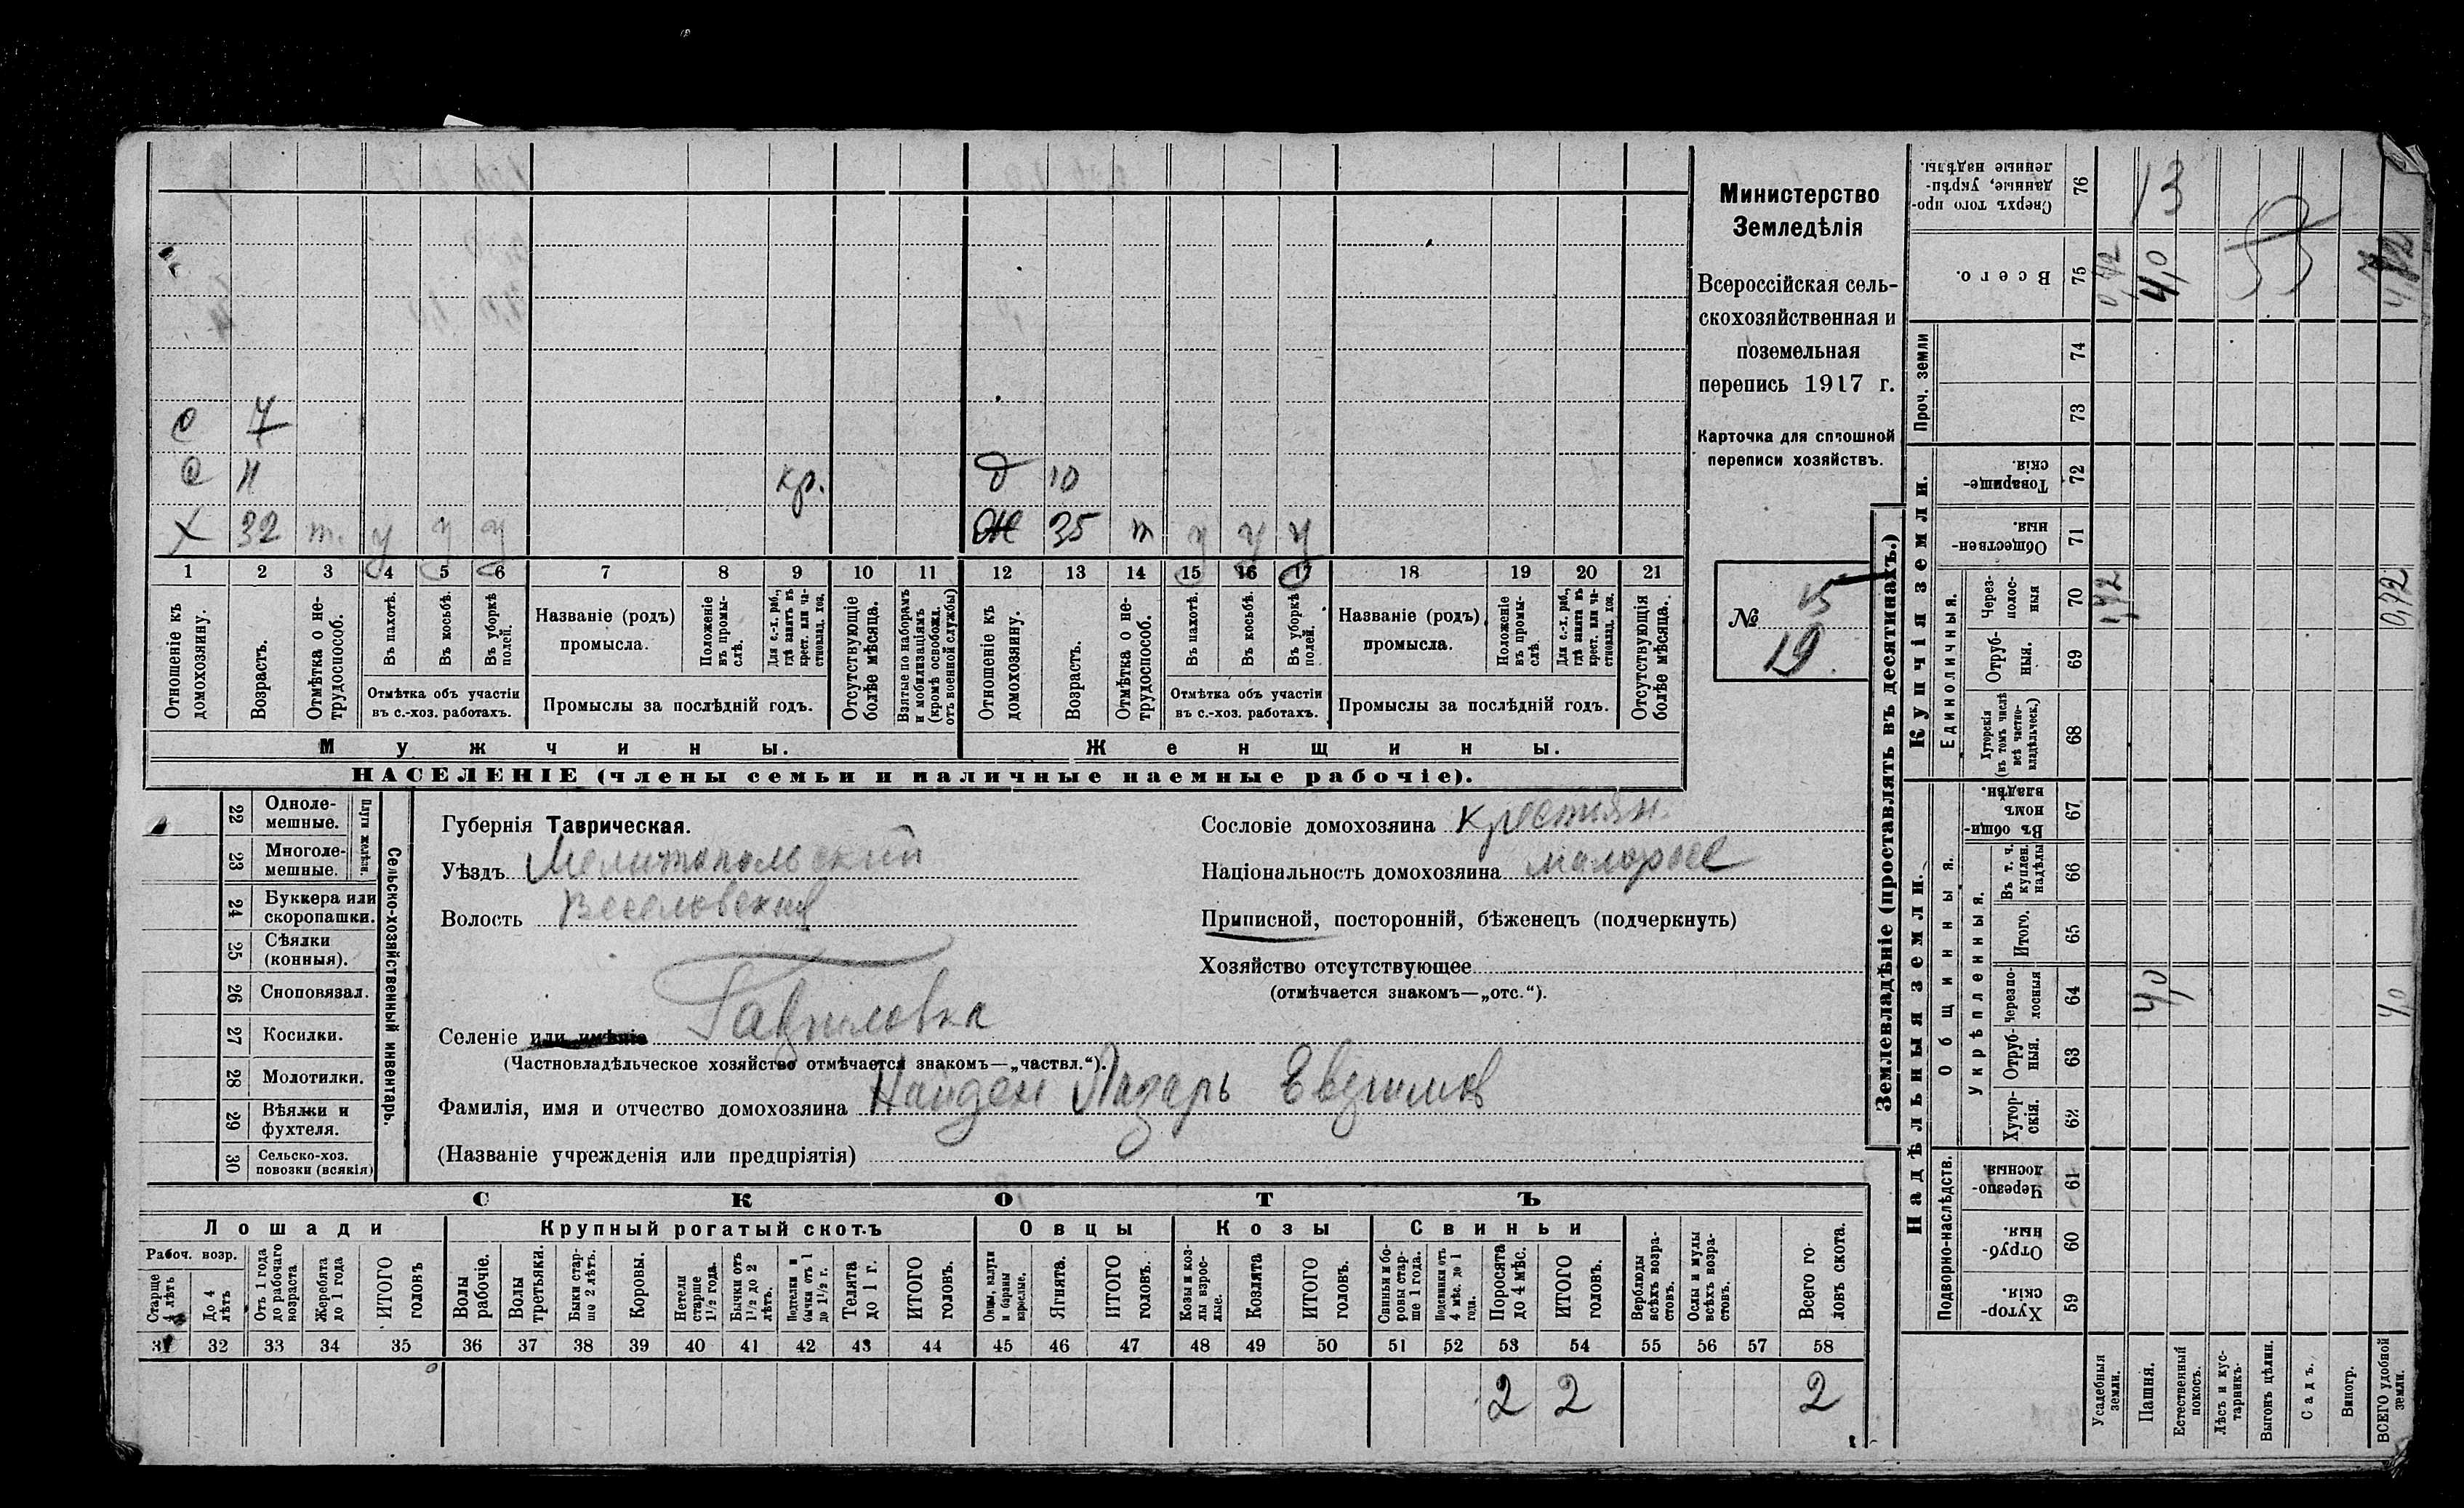 с 7
с 11 кр. д 10
х 32 т. у у у Ж 35 т у у у
1 2 3 4 5 6 7 8 9 10 11 12 13 14 15 16 17 18 19 20 21
Отношеніе къ домохозяину.
Возрастъ.
Отмѣтка о не-трудоспособ.
Въ пахотѣ.
Въ косьбѣ.
Въ уборкѣ полей.
Отмѣтка объ участіи въ с.-хоз. работахъ.
Названіе (родъ) промысла.
Положеніе въ промы-слѣ.
Для с.-х. раб., гдѣ занятъ въ крест. или ча-стновлад. хоз.
Промыслы за послѣдній годъ.
Отсутствующіе болѣе мѣсяца.
Взятые по наборамъ и мобилизаціямъ (кромѣ освобожд. отъ военной службы)
Отношеніе къ домохозяину.
Возрастъ.
Отмѣтка о не-трудоспособ.
Въ пахотѣ.
Въ косьбѣ.
Въ уборкѣ полей.
Отмѣтка объ участіи въ с.-хоз. работахъ.
Названіе (родъ) промысла.
Положеніе въ промы-слѣ.
Для с.-х. раб., гдѣ занята въ крест. или ча-стновлад. хоз.
Промыслы за послѣдній годъ.
Отсутствующія болѣе мѣсяца.
Мужчины. Женщины.
НАСЕЛЕНІЕ (члены семьи и наличные наемные рабочіе).
Министерство
Земледѣлія
Всероссійская сель-
скохозяйственная и
поземельная
перепись 1917 г.
Карточка для сплошной
переписи хозяйствъ.
№ 15
19
Сельско-хозяйственный инвентарь.
Плуги желѣзн.
22 Одноле-мешные.
23 Многоле-мешные.
24 Буккера или скоропашки.
25 Сѣялки (конныя).
26 Сноповязал.
27 Косилки.
28 Молотилки.
29 Вѣялки и фухтеля.
30 Сельско-хоз. повозки (всякія)
Губернія Таврическая.
Уѣздъ Мелитопольский
Волость Веселовская
Селеніе или имѣніе Гавриловка
(Частновладѣльческое хозяйство отмѣчается знакомъ—„частвл.“).
Фамилія, имя и отчество домохозяина Найден Лазарь Евфимов
(Названіе учрежденія или предпріятія)
Сословіе домохозяина крестьян.
Національность домохозяина малоросс
Приписной, посторонній, бѣженецъ (подчеркнуть)
Хозяйство отсутствующее
(отмѣчается знакомъ—„отс.“).
СКОТЪ
Лошади Крупный рогатый скотъ Овцы Козы Свиньи
Рабоч. возр.
Старше 4 лѣтъ
До 4 лѣтъ
Отъ 1 года до рабочаго возраста
Жеребята до 1 года
ИТОГО головъ
Волы рабочіе.
Волы третьяки.
Быки стар-ше 2 лѣтъ.
Коровы.
Нетели старше 1½ года.
Бычки отъ 1½ до 2 лѣтъ.
Подтелки и бычки отъ 1 до 1½ г.
Телята до 1 г.
ИТОГО головъ.
Овцы, валухи и бараны взрослые.
Ягнята.
ИТОГО головъ.
Козы и коз-лы взрос-лые.
Козлята
ИТОГО головъ.
Свиньи и бо-ровы стар-ше 1 года.
Подсвинки отъ 4 мѣс. до 1 года.
Поросята до 4 мѣс.
ИТОГО головъ.
Верблюды всѣхъ возра-стовъ.
Ослы и мулы всѣхъ возра-стовъ.
Всего го-ловъ скота.
31 32 33 34 35 36 37 38 39 40 41 42 43 44 45 46 47 48 49 50 51 52 53 54 55 56 57 58
2 2 2
Землевладѣніе (проставлять въ десятинахъ.)
Надѣльныя земли. Купчія земли.
Проч. земли
Подворно-наслѣдств.
Общинныя.
Укрѣпленныя.
Единоличныя.
59 Хутор-скія.
60 Отруб-ныя.
61 Черезпо-лосныя
62 Хутор-скія.
63 Отруб-ныя.
64 Черезпо-лосныя
65 Итого.
66 Въ т. ч. куплен. надѣлы
67 Въ общин-номъ владѣн.
68 Хуторскія (въ томъ числѣ всѣ частно-владѣльческ.)
69 Отруб-ныя.
70 Через-полос-ныя
71 Обществен-ныя.
72 Товарище-скія.
73
74
75 Всего.
76 Сверхъ того про-данные, укрѣп-ленные надѣлы.
Усадебныя земли.
Пашня.
Естественный покосъ.
Лѣсъ и кус-тарникъ.
Выгонъ цѣлин.
Садъ.
Виногр.
ВСЕГО удобной земли.
4,0
4,0
0,72
0,72
4,0
13